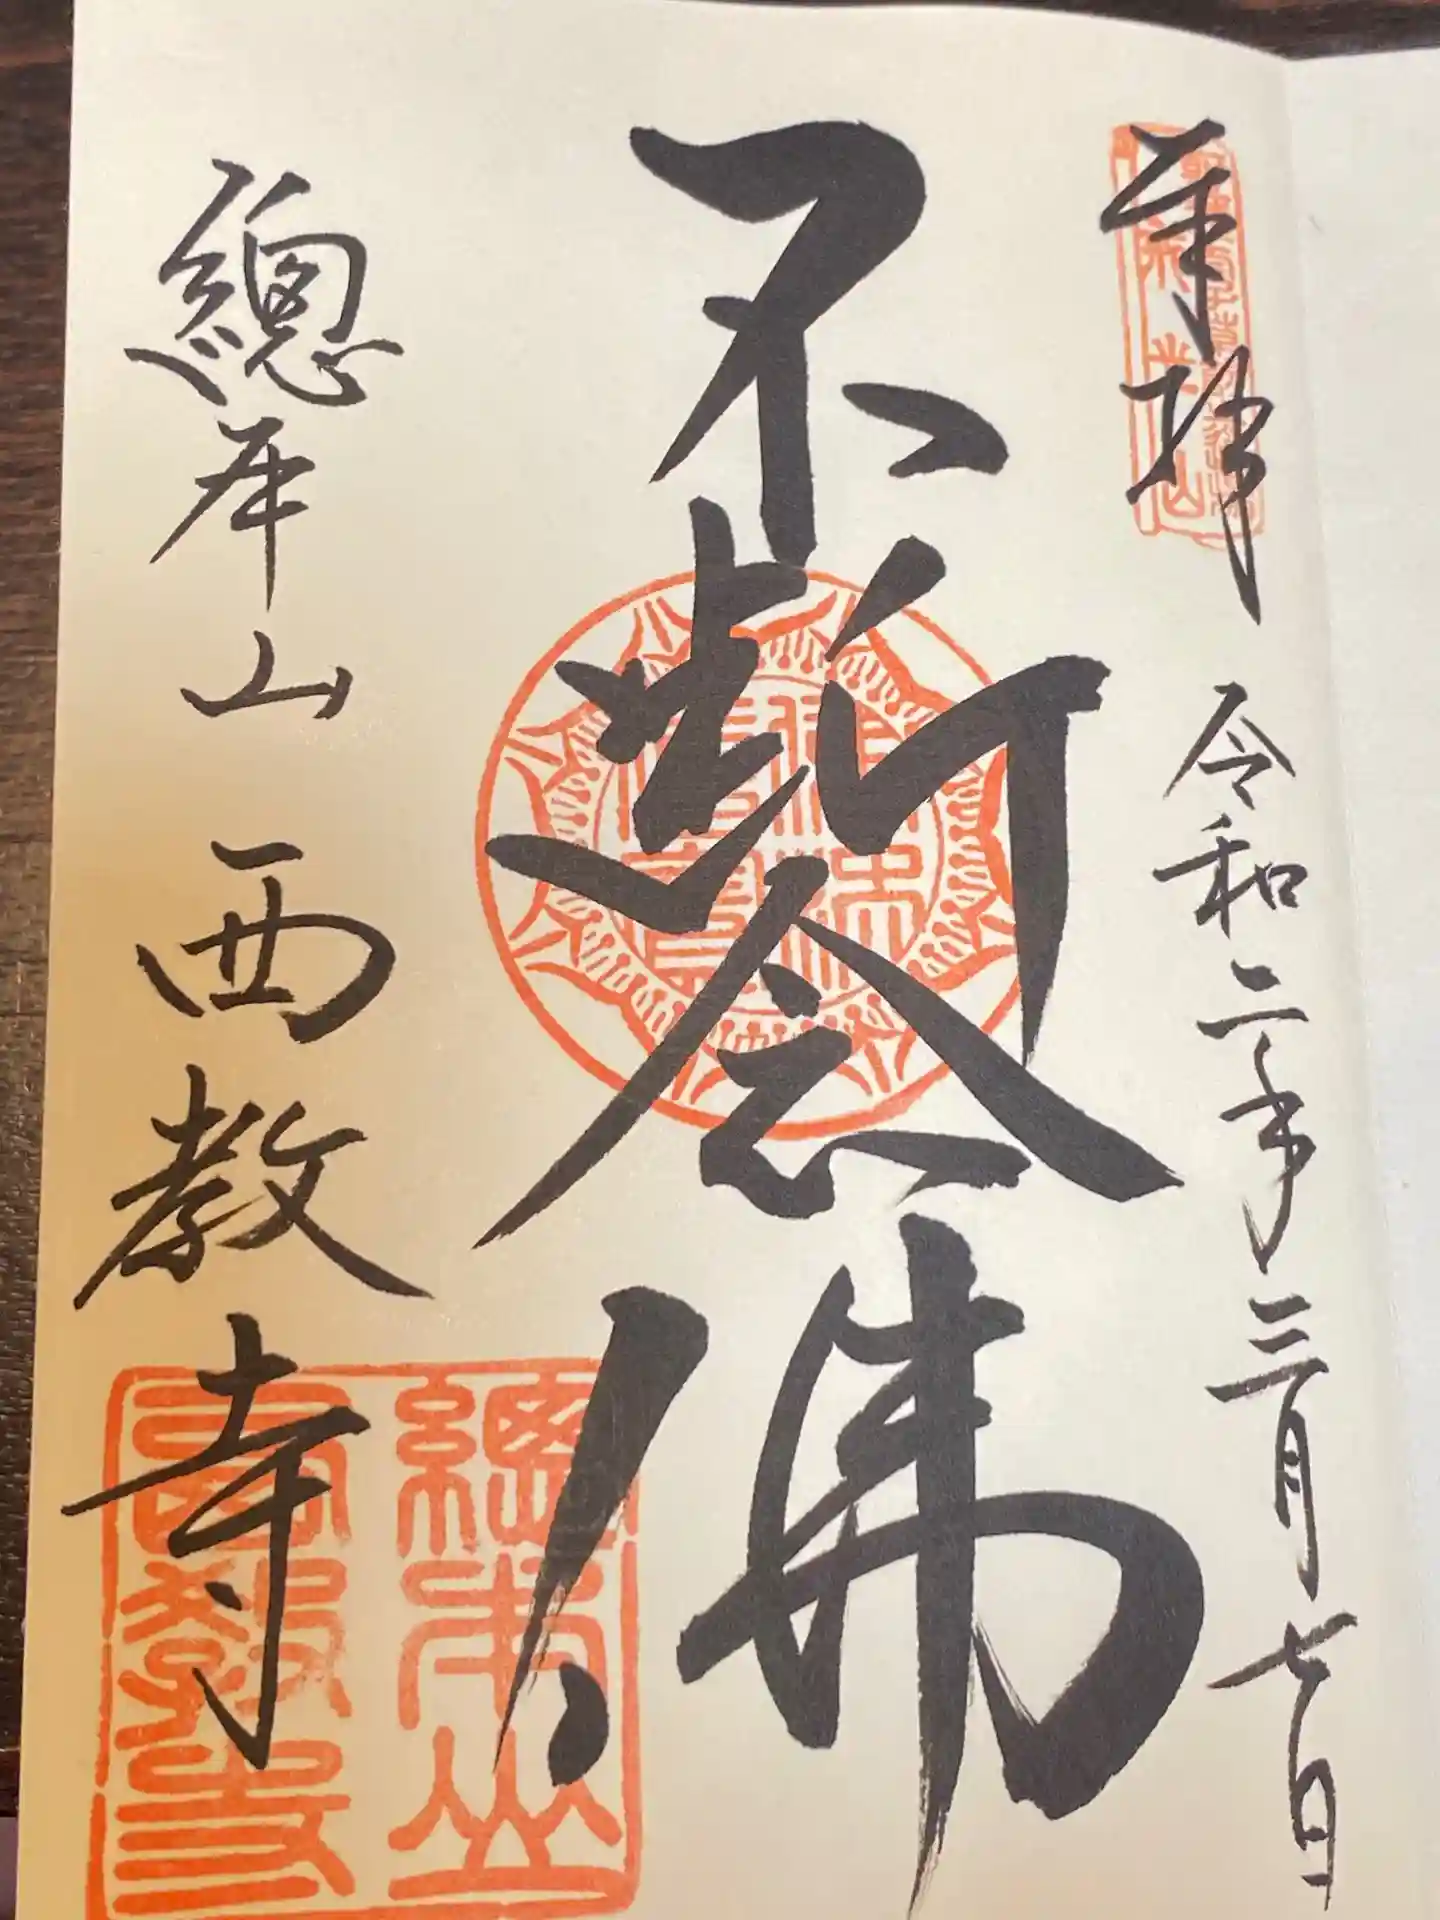 奉拝 令和二年三月七日
不断念佛
總本山 西教寺
總本山
西教寺